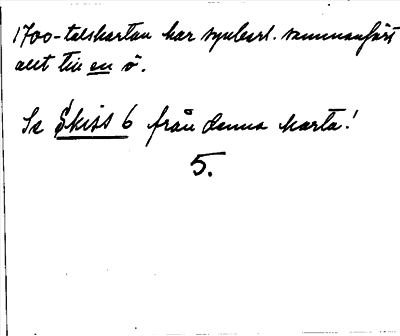 1700-talskartan har synbarl. sammanfört
allt till en ö.
Se Skiss 6 från denna karta!
5.